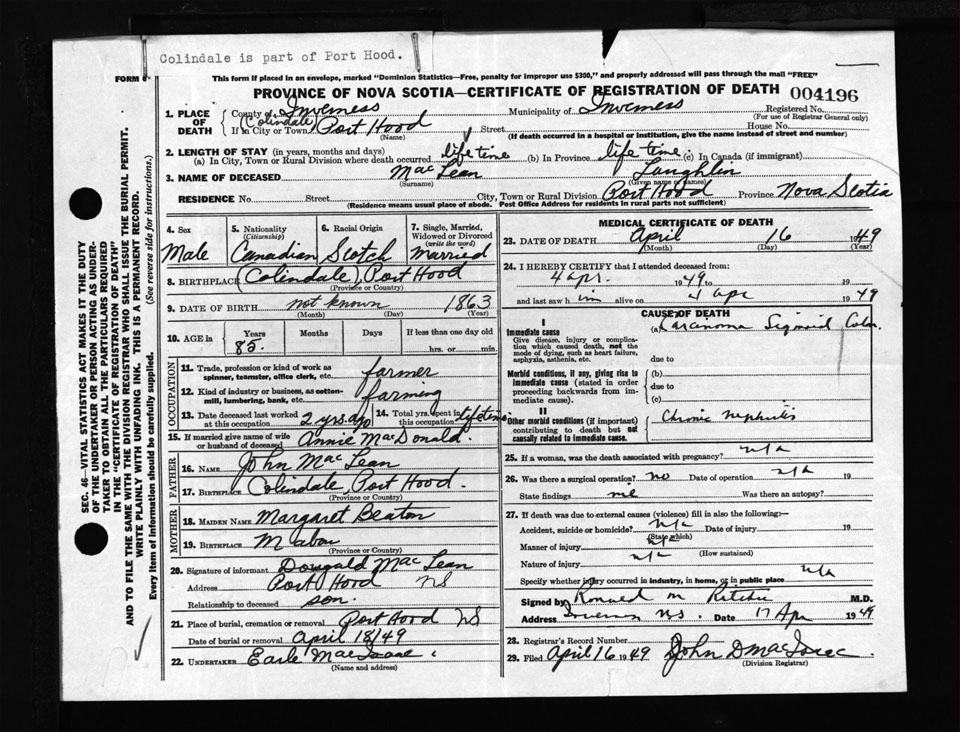 Colindale is part of Port Hood.
FORM 6
This form if placed in an envelope, marked "Dominion Statistics—Free, penalty for improper use $300," and properly addressed will pass through the mail "FREE"
PROVINCE OF NOVA SCOTIA—CERTIFICATE OF REGISTRATION OF DEATH 004196
1. PLACE OF DEATH County of Inverness Municipality of Inverness Registered No.
(For use of Registrar General only)
If in City or Town (Colindale) Port Hood Street House No.
(Name) (If death occurred in a hospital or institution, give the name instead of street and number)
2. LENGTH OF STAY (in years, months and days)
(a) In City, Town or Rural Division where death occurred life time (b) In Province life time (c) In Canada (if immigrant)
3. NAME OF DECEASED Mac Lean Laughlin
(Surname) (Given name or names)
RESIDENCE No. Street City, Town or Rural Division Port Hood Province Nova Scotia
(Residence means usual place of abode. Post Office Address for residents in rural parts not sufficient)
4. Sex
Male
5. Nationality (Citizenship)
Canadian
6. Racial Origin
Scotch
7. Single, Married, Widowed or Divorced (write the word)
Married
8. BIRTHPLACE (Colindale), Port Hood
(Province or Country)
9. DATE OF BIRTH not known 1863
(Month) (Day) (Year)
10. AGE in Years Months Days If less than one day old
85. hrs. or min.
OCCUPATION
11. Trade, profession or kind of work as spinner, teamster, office clerk, etc. farmer
12. Kind of industry or business, as cotton-mill, lumbering, bank, etc. farming
13. Date deceased last worked at this occupation 2 yrs. ago 14. Total yrs. spent in this occupation lifetime
15. If married give name of wife or husband of deceased Annie MacDonald.
FATHER
16. NAME John Mac Lean
17. BIRTHPLACE Colindale, Port Hood.
(Province or Country)
MOTHER
18. MAIDEN NAME Margaret Beaton
19. BIRTHPLACE Mabou
(Province or Country)
20. Signature of informant Dougald Mac Lean
Address Port Hood NS
Relationship to deceased son.
21. Place of burial, cremation or removal Port Hood NS
Date of burial or removal April 18/49
22. UNDERTAKER Earle MacIsaac
(Name and address)
MEDICAL CERTIFICATE OF DEATH
23. DATE OF DEATH April 16 1949
(Month) (Day) (Year)
24. I HEREBY CERTIFY that I attended deceased from:
4 apr. 1949 to 19
and last saw him alive on 4 apr 1949
CAUSE OF DEATH
I
Immediate cause (a) Carcanoma Sigmoid Colon.
Give disease, injury or complication which caused death, not the mode of dying, such as heart failure, asphyxia, asthenia, etc. due to
Morbid conditions, if any, giving rise to immediate cause (stated in order proceeding backwards from immediate cause). (b)
due to
(c)
II
Other morbid conditions (if important) contributing to death but not causally related to immediate cause. Chronic nephritis
25. If a woman, was the death associated with pregnancy? n/a
26. Was there a surgical operation? no Date of operation n/a 19
State findings Was there an autopsy?
27. If death was due to external causes (violence) fill in also the following:—
Accident, suicide or homicide? n/a Date of injury 19
(State which)
Manner of injury n/a
(How sustained)
Nature of injury n/a
Specify whether injury occurred in industry, in home, or in public place n/a
Signed by Ronald M Ritchie M.D.
Address Inverness N.S. Date 17 Apr 1949
28. Registrar's Record Number
29. Filed April 16 1949 John D MacIsaac
(Division Registrar)
SEC. 46—VITAL STATISTICS ACT MAKES IT THE DUTY
OF THE UNDERTAKER OR PERSON ACTING AS UNDER-
TAKER TO OBTAIN ALL THE PARTICULARS REQUIRED
IN THE "CERTIFICATE OF REGISTRATION OF DEATH"
AND TO FILE THE SAME WITH THE DIVISION REGISTRAR WHO SHALL ISSUE THE BURIAL PERMIT.
WRITE PLAINLY WITH UNFADING INK. THIS IS A PERMANENT RECORD.
Every item of information should be carefully supplied. (See reverse side for instructions.)